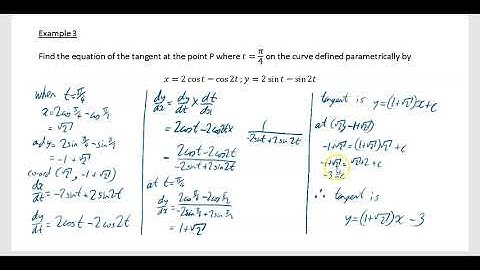 Example 3
Find the equation of the tangent at the point P where t = π/4 on the curve defined parametrically by
x = 2 cos t − cos 2t ; y = 2 sin t − sin 2t
when t = π/4
x = 2cos π/4 − cos π/2
= √2
and y = 2sin π/4 − sin π/2
= −1 + √2
coord (√2, −1 + √2)
dx/dt = −2sint + 2sin2t
dy/dt = 2cost − 2cos2t
dy/dx = dy/dt × dt/dx
= 2cost − 2cos2t × 1/(−2sint + 2sin2t)
= (2cost − 2cos2t)/(−2sint + 2sin2t)
at t = π/4
dy/dx = (2cos π/4 − 2cos π/2)/(−2sin π/4 + 2sin π/2)
= 1 + √2
tangent is y = (1+√2)x + c
at (√2, −1+√2)
−1+√2 = (1+√2)√2 + c
−1+√2 = √2 + 2 + c
−3 = c
∴ tangent is
y = (1+√2)x − 3